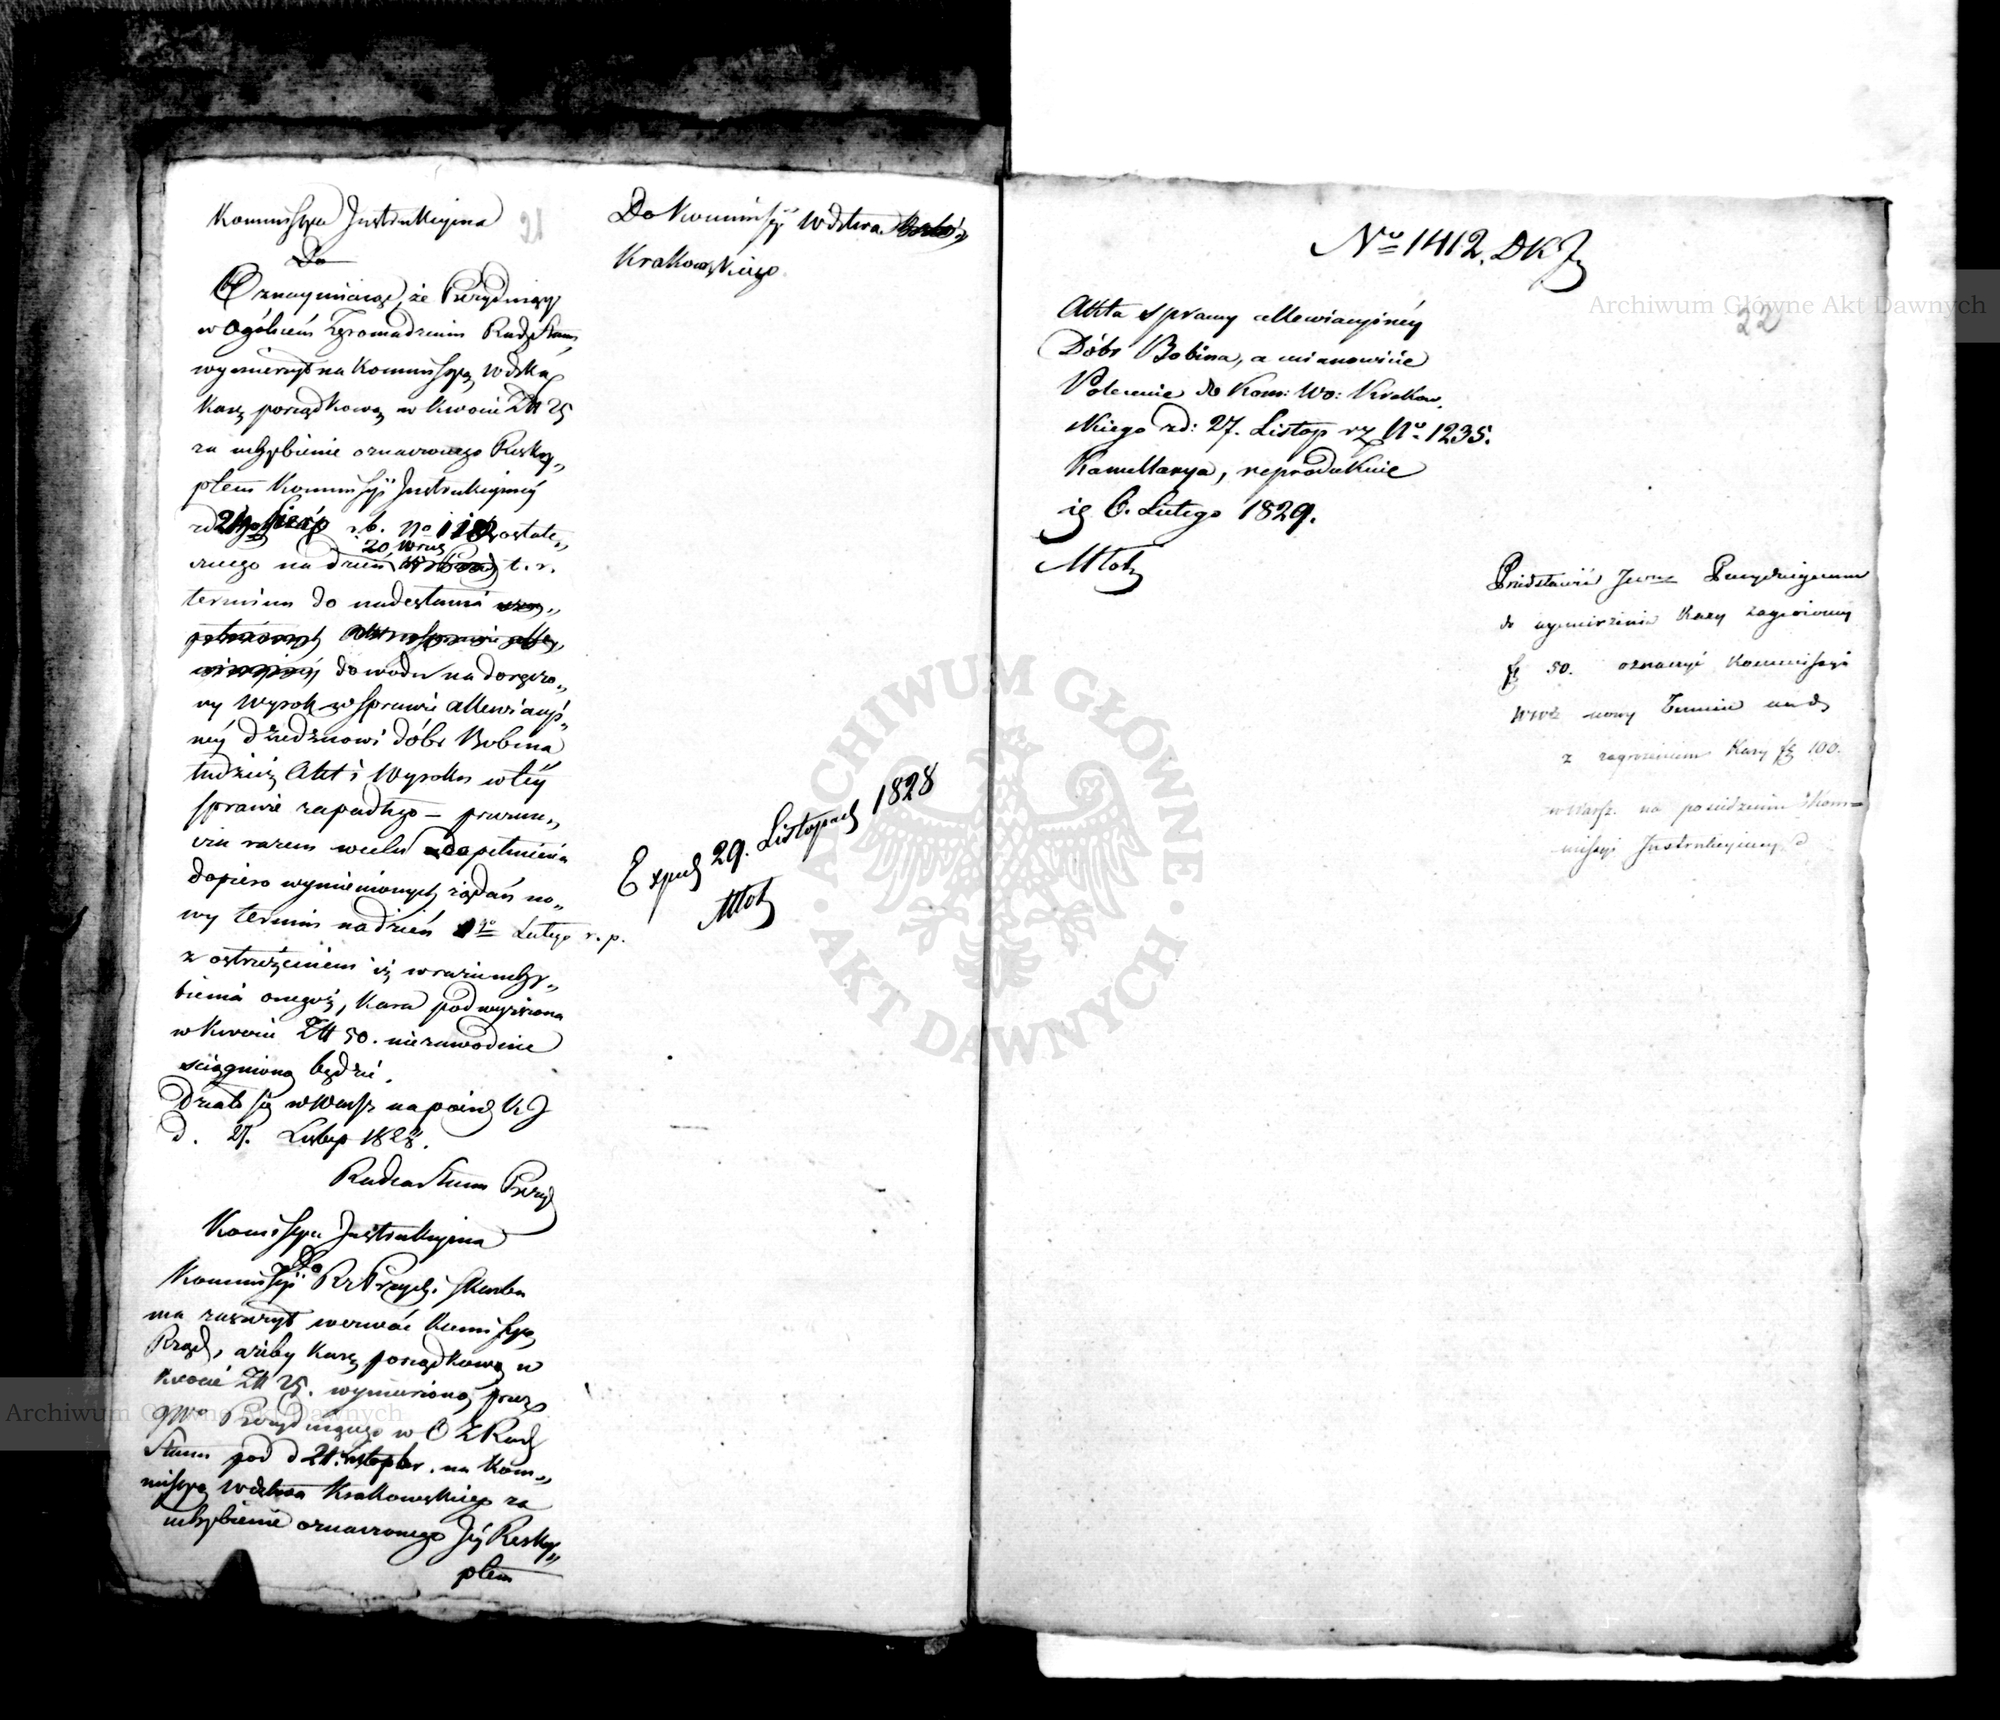 Kommissya Instrukcyjna
Do
Oznaymiając, że Prezydujący
w Ogólném Zgromadzeniu Rady Stanu
wymierzył na Kommissyą Wdzką
Karę porządkową w kwocie Złł 25
za uchybienie oznaczonego Reskry„
ptem Kommissyi Instrukcyjnéy
r.b. No ostate„
cznego na dzień 20 Wrześ t. r.
terminu do nadesłania
dowodu na doręczo„
ny Wyrok w sprawie allewiacyi„
néy dziedzicowi dóbr Bobina
tudzież Akt i Wyroku w téy
sprawie zapadłego – przezna„
cza razem w celu dopełnienia
dopiero wymienionych żądań no„
wy termin na dzień Lutego r. p.
z ostrzeżeniem iż w razie uchy„
bienia onegoż, kara podwyższona
w kwocie Złł 50. niezawodnie
ściągnioną będzie.
Działo się w Warsz na posied K J
d. 27. Listop 1828.
Radca Stanu Prezyd
Komissya Instrukcyjna
Do
Kommissyi Rz Przych. i Skarbu
ma zaszczyt wezwać Kommissyą
Rząd, ażeby karę porządkową w
kwocie Złł 25. wymierzoną przez
JWo Prezydującego w O Z Rady
Stanu pod d 24. Listop br. na Kom„
missyą Wdztwa Krakowskiego za
uchybienie oznaczonego Jéy Reskry„
ptem
21
Do Kommissyi Wdztwa
Krakowskiego
Exped 29. Listopad 1828
Młot
No 1412. DKJ
22
Akta sprawy allewiacyjnéy
Dóbr Bobina, a mianowicie
Polecenie do Kom: Wo: Krakow.
skiego zd: 27. Listop rz No 1235.
Kancellarya, reprodukuie
ie 6. Lutego 1829.
Młot
Przedstawić Prezyduiącemu
do wymierzenia Kary zagrożonéy
fl 50. oznaczyć Kommissyi
Wwdz nowy Termin
z zagrożeniem Kary fl 100.
w Warsz. na posiedzeniu Kom–
missyi Instrukcyinéy d
Archiwum Główne Akt Dawnych
Archiwum Główne Akt Dawnych
ARCHIWUM GŁÓWNE
AKT DAWNYCH